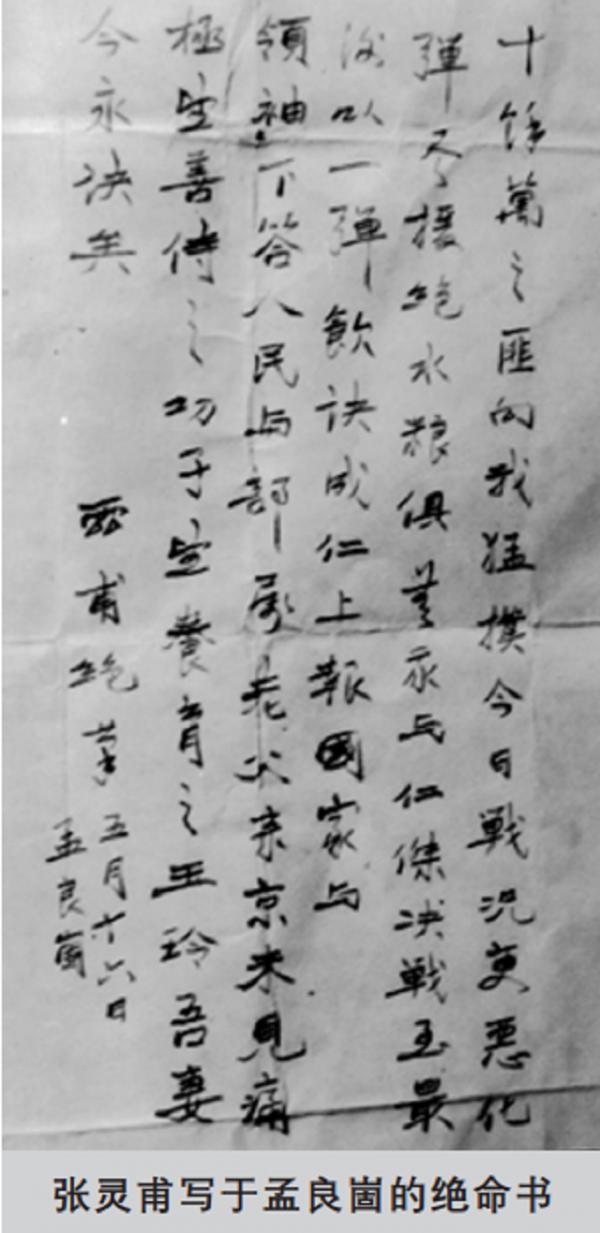 十餘萬之匪向我猛撲今日戰况更惡化
彈尽援絕水粮俱無余与仁傑决戰至最
後以一彈飲訣成仁上報國家与
領袖下答人民与部屬老父來京未見痛
極望善待之幼子望養育之玉玲吾妻
今永訣矣
灵甫絕筆五月十六日
孟良崮
张灵甫写于孟良崮的绝命书